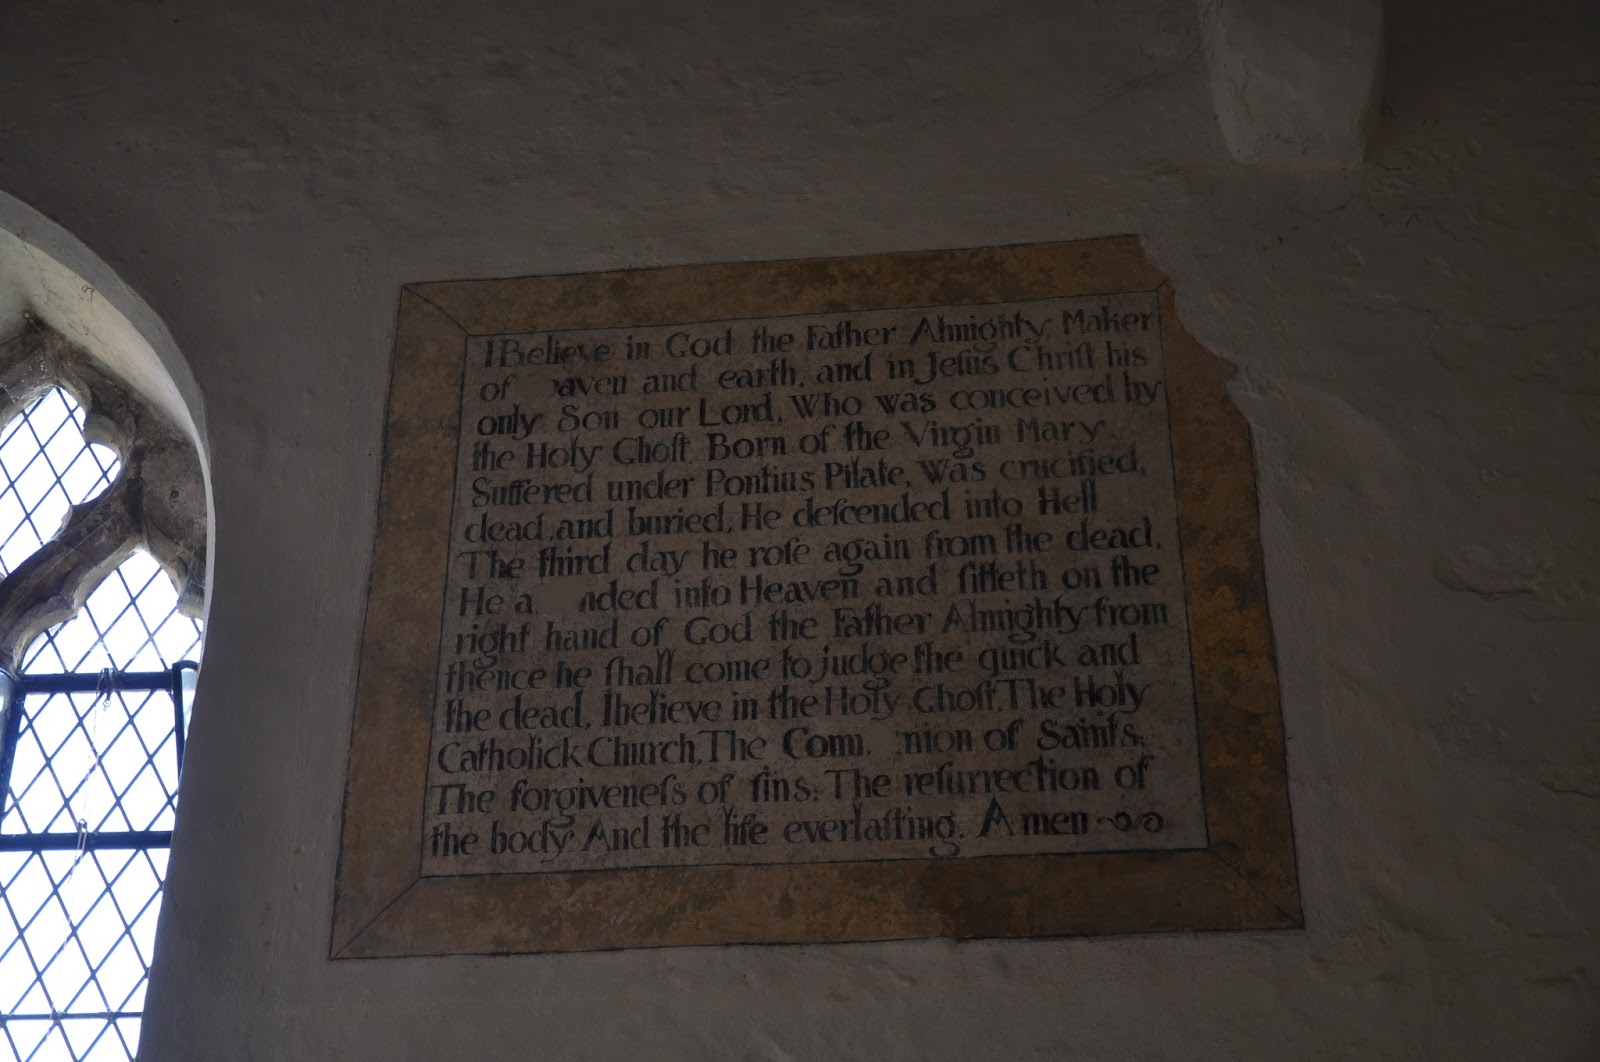 I Believe in God the Father Almighty Maker
of  aven and earth, and in Jeſus Chriſt his
only Son our Lord, Who was conceived by
the Holy Ghoſt Born of the Virgin Mary.
Suffered under Pontius Pilate, Was crucified,
dead, and buried, He deſcended into Hell
The third day he roſe again from the dead.
He a  nded into Heaven and ſitteth on the
right hand of God the Father Almighty from
thence he ſhall come to judge the quick and
the dead, I believe in the Holy Ghoſt, The Holy
Catholick Church, The Com  nion of Saints,
The forgiveneſs of ſins: The reſurrection of
the body And the life everlaſting. Amen